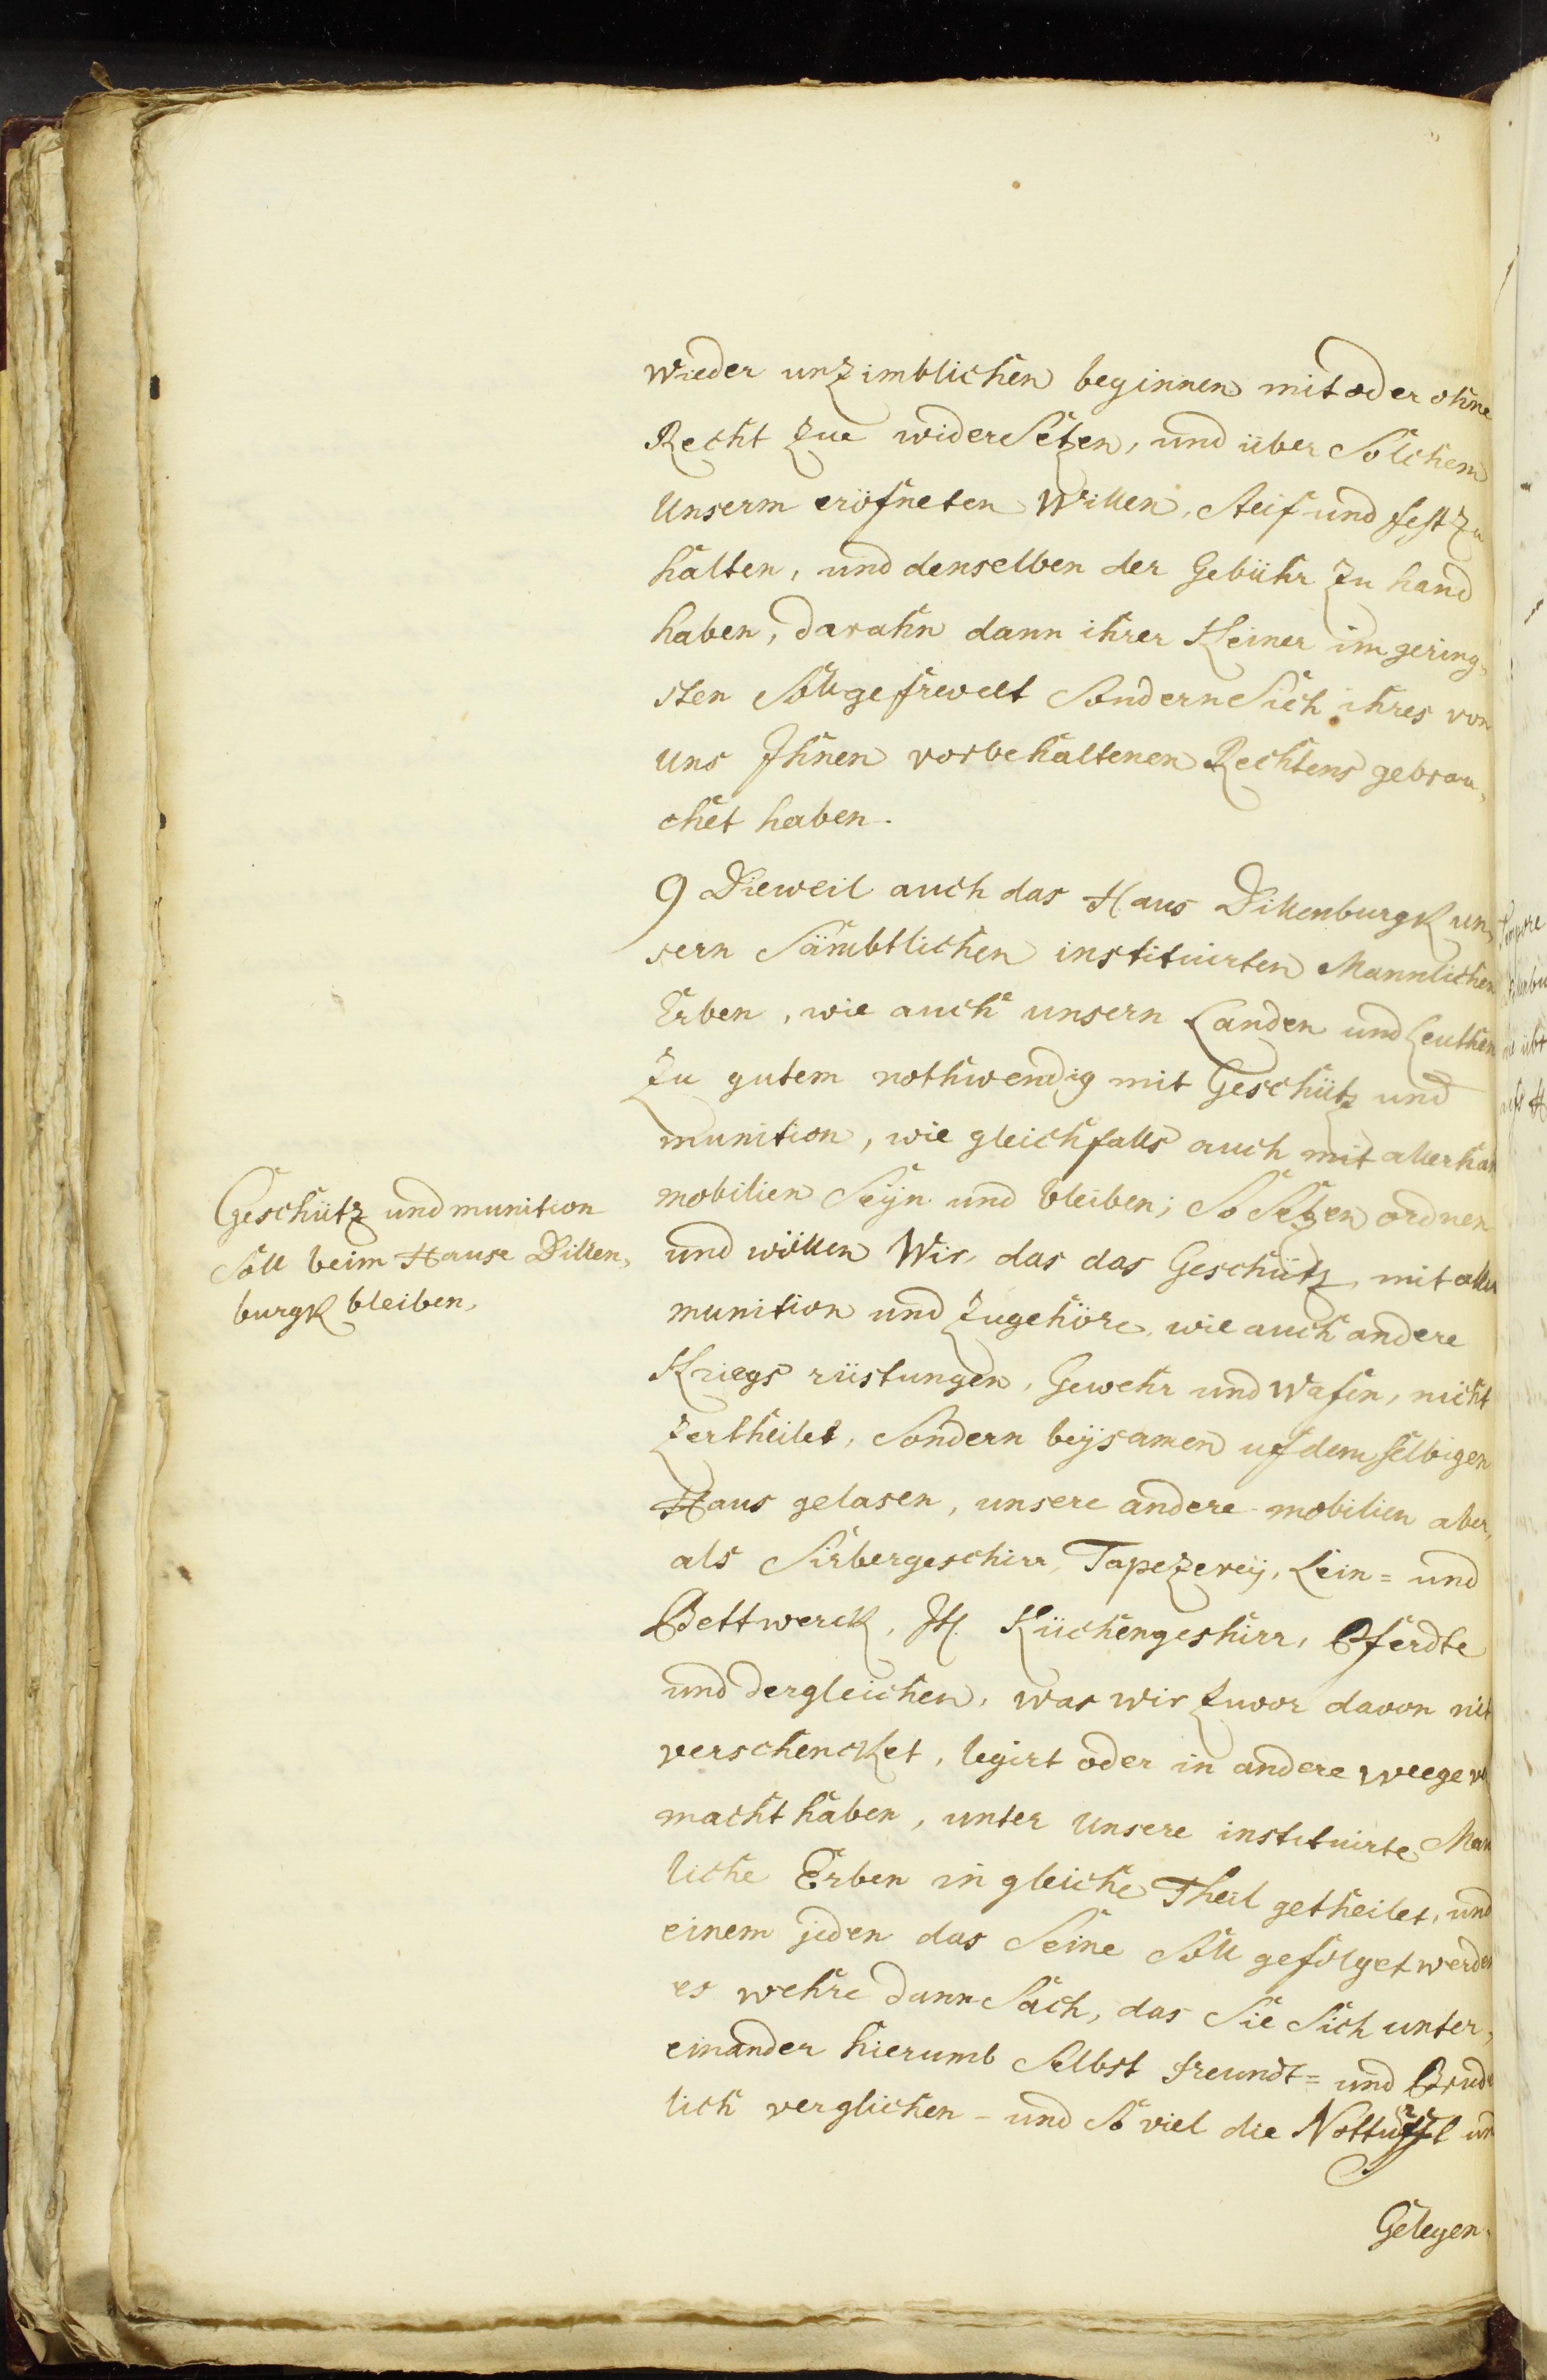 wieder unzimblichen beginnen mit oder ohne
Recht zue widersetzen, und über Solchem
Unserm eröfneten Willen, steif und fest zu
halten, und denselben der Gebühr zu hand
haben, darahn dann ihrer Keiner im gering,
sten Soll gefrevelt Sondern Sich ihres von
uns Ihnen vorbehaltenen Rechtens gebrau,
chet haben.
9 Dieweil auch das Haus Dillenburgk un,
sern Sämbtlichen instituirten Mannlichen
Erben, wie auch unsern Landen und Leuthen
zu gutem nothwendig mit Geschütz und
munition, wie gleichfalls auch mit allerhan
mobilien Seÿn und bleiben; So Setzen ordnen
und wöllen Wir, das das Geschütz, mit aller
munition und Zugehöre, wie auch andere
Kriegs rüstungen, Gewehr und Wafen, nicht
zertheilet, Sondern beÿsamen uf demselbigen
Haus gelasen, unsere andere mobilien aber,
als Sirbergeschirr, Tapezereÿ, Lein= und
Bettwerck, It. Küchengeshirr, Pferdte
und dergleichen, was wir zuvor davon nit
verschencket, legirt oder in andere weege ver
macht haben, unter Unsere instituirte Man
liche Erben in gleiche Theil getheilet, und
einem jeden das Seine Soll gefolget werden
es wehre dann Sach, das Sie Sich unter,
einander hierumb Selbst freundt= und Brud
lich verglichen - und So viel die und
Gelegen,
Geschütz und munition
Soll beim Hause Dillen,
burgk bleiben,